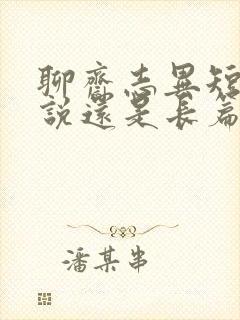 聊齋志異短
說還是長篇
潘某串